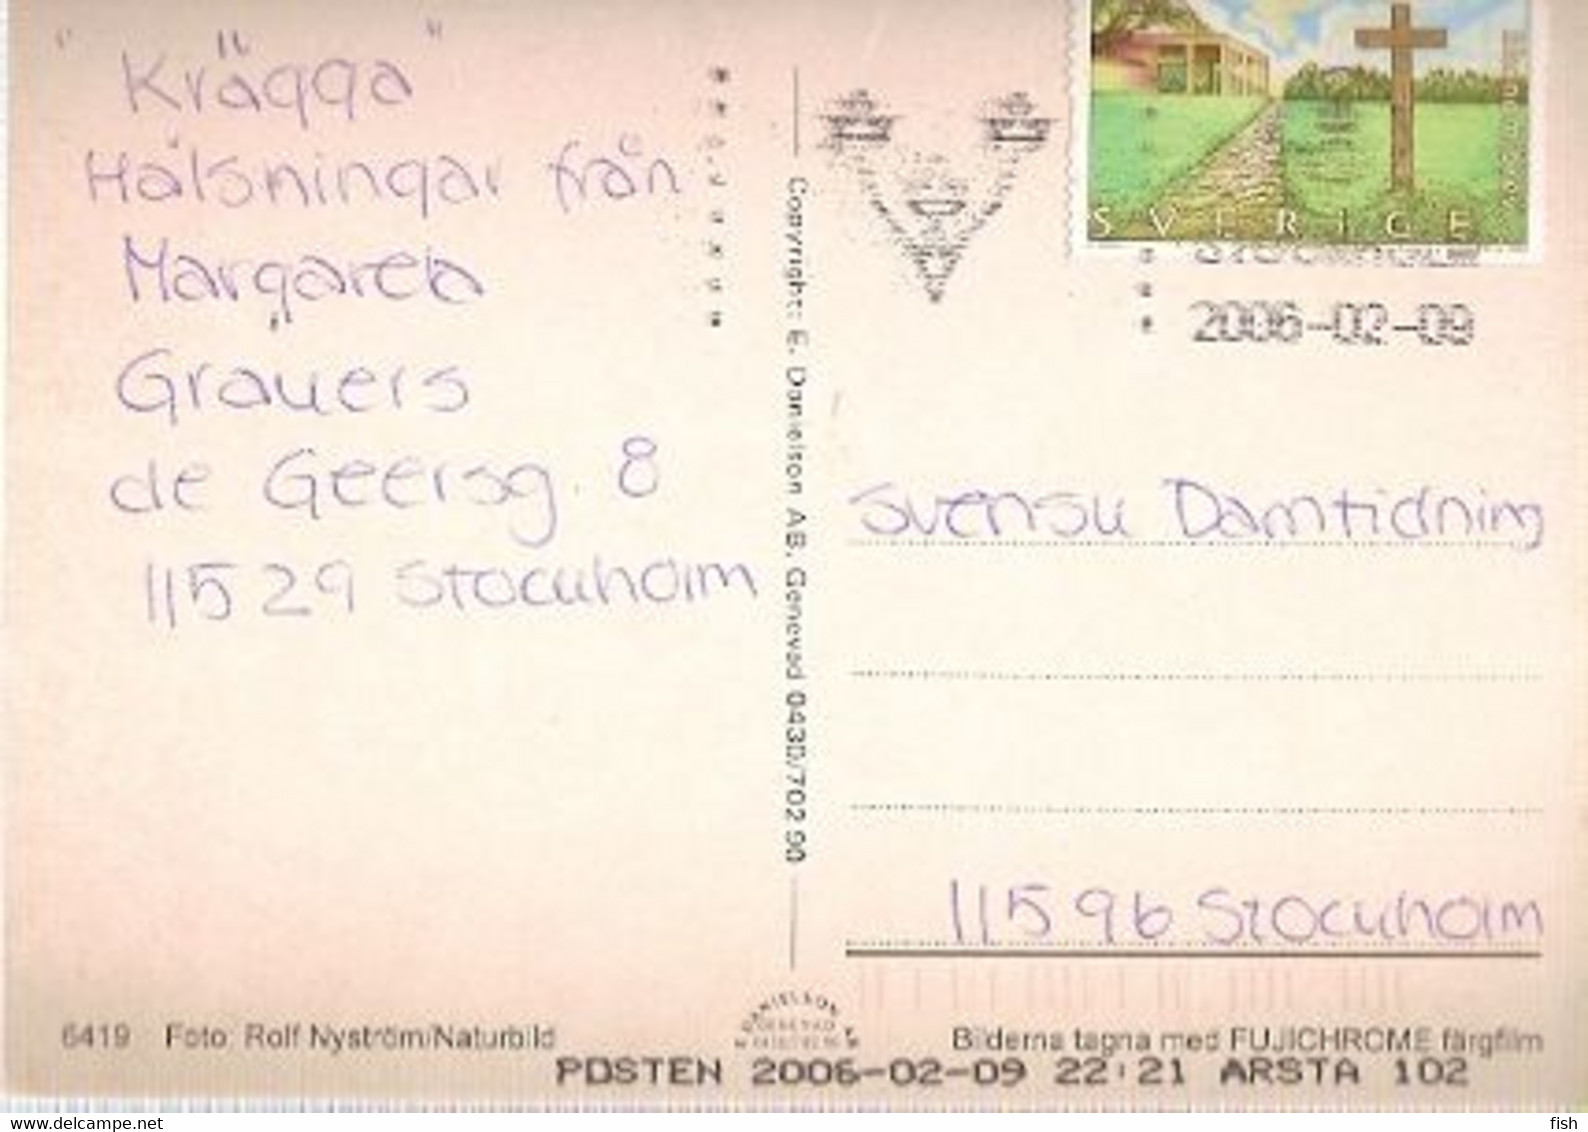 "Krägga"
Hälsningar från
Margareta
Grauers
de Geersg. 8
11529 Stockholm
Copyright: E. Danielson AB, Genevad 0430/702 90
SVERIGE
2006-02-09
Svensk Damtidning
11596 Stockholm
6419 Foto Rolf Nyström/Naturbild
DANIELSON
GENEVAD
Bilderna tagna med FUJICHROME färgfilm
POSTEN 2006-02-09 22:21 ARSTA 102
www.delcampe.net
fish